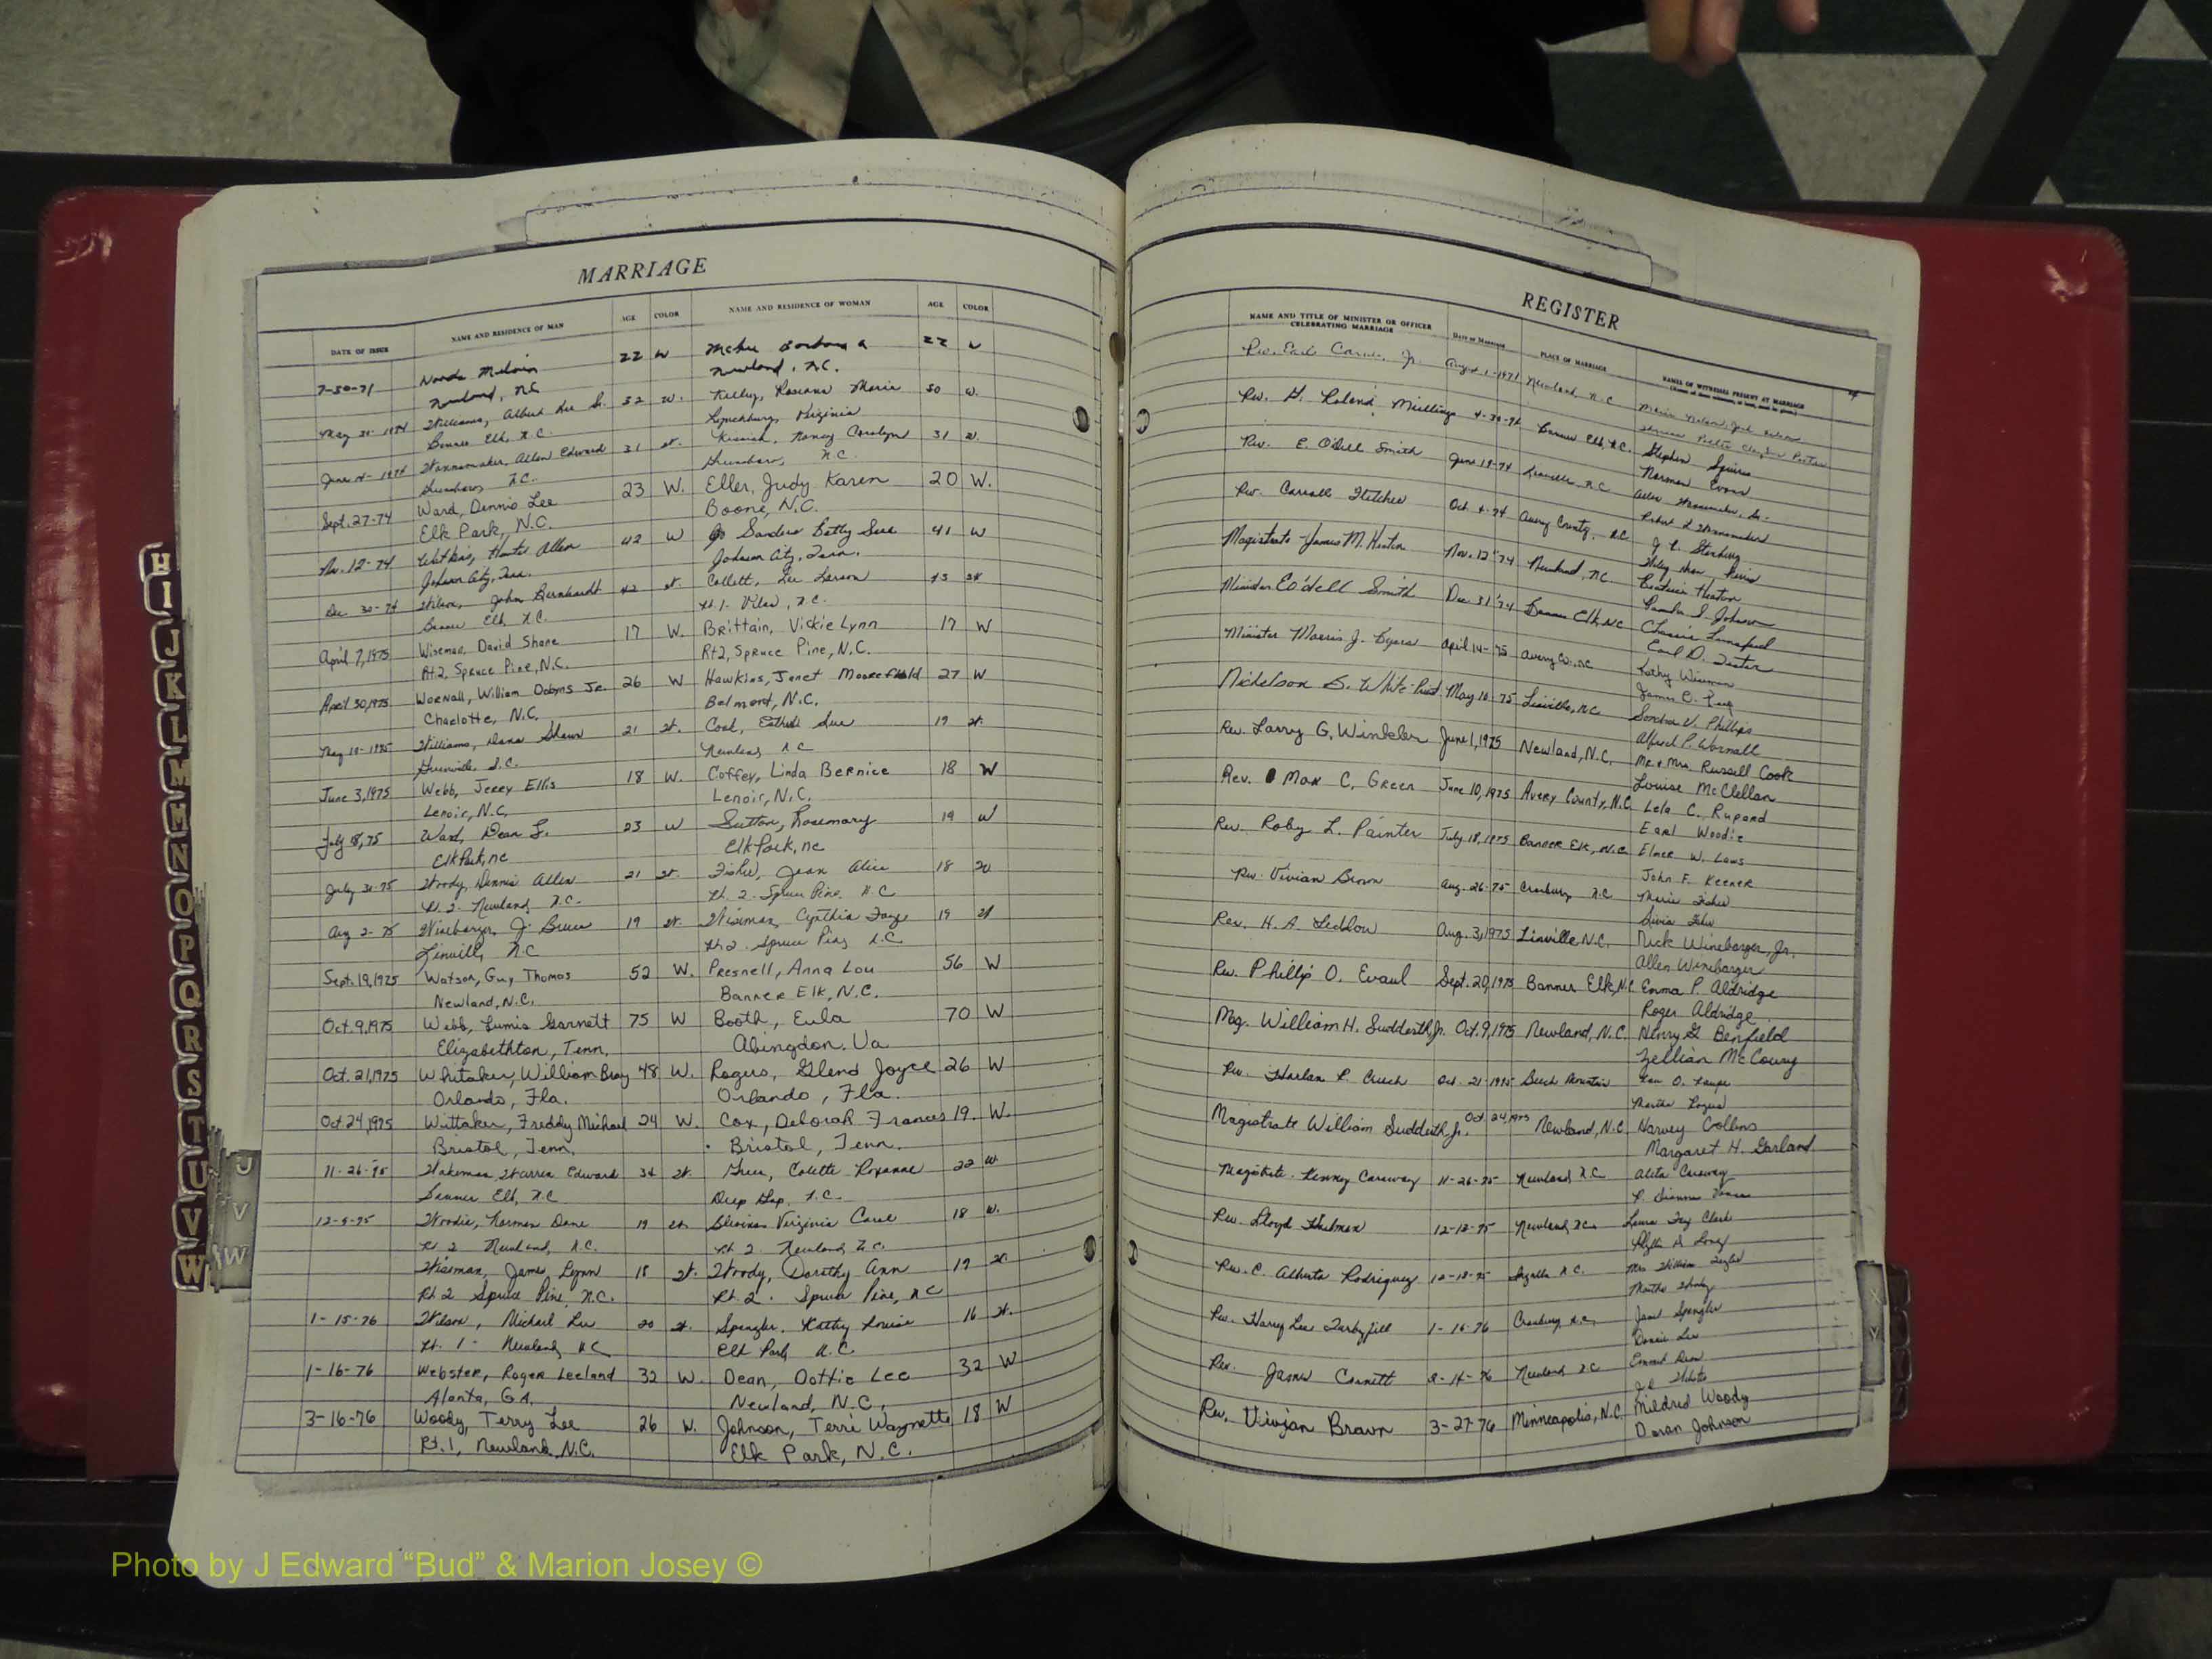 MARRIAGE
DATE OF ISSUE NAME AND RESIDENCE OF MAN AGE COLOR NAME AND RESIDENCE OF WOMAN AGE COLOR
7-30-71 Woods Melvin 22 W McKee Barbara a 22 W
Newland, NC Newland, N.C.
May 21-1974 Williams, Albert Lee Sr. 52 W. Kelley, Roseann Marie 50 W.
Banner Elk, N.C. Lynchburg, Virginia
June 14-1974 Wannamaker, Allen Edward 31 W. Nancy Carolyn 31 W.
Greensboro, N.C. Greensboro, N.C.
Sept. 27-74 Ward, Dennis Lee 23 W. Eller, Judy Karen 20 W.
Elk Park, N.C. Boone, N.C.
Nov. 12-74 Watkins, Allen 42 W Sanders Betty Sue 41 W
Johnson City, Tenn. Johnson City, Tenn.
Dec 30-74 Wilson, John Bernhardt 42 W. Collett, Lee Larson 43 W
Banner Elk, N.C. Rt. 1- Vilas, N.C.
April 7, 1975 Wiseman, David Shane 17 W. Brittain, Vickie Lynn 17 W
Rt2, Spruce Pine, N.C. Rt2, Spruce Pine, N.C.
April 30, 1975 Wornall, William Dobyns Jr. 26 W Hawkins, Janet Moorefield 27 W
Charlotte, N.C. Belmont, N.C.
May 19-1975 Williams, Dana Shawn 21 W. Cook, Sue 19 W.
Greenville, S.C. Newland, N.C
June 3, 1975 Webb, Jerry Ellis 18 W. Coffey, Linda Bernice 18 W
Lenoir, N.C. Lenoir, N.C.
July 18, 75 Ward, Dean L. 23 W Sutton, Rosemary 19 W
Elk Park, nc Elk Park, nc
July 31-75 Woody, Dennis Allen 21 W. Fisher, Jean Alice 18 W
Rt. 2- Newland, N.C. Rt. 2- Spruce Pine, N.C
Aug 2-75 Winebarger, J. Bruce 19 W. Wiseman, Cynthia Faye 19 W
Linville, N.C Rt 2- Spruce Pine, N.C
Sept. 19, 1975 Watson, Guy Thomas 52 W. Presnell, Anna Lou 56 W
Newland, N.C. Banner Elk, N.C.
Oct. 9, 1975 Webb, Lumis Garnett 75 W Booth, Eula 70 W
Elizabethton, Tenn. Abingdon, Va
Oct. 21, 1975 Whitaker, William Bray 48 W. Rogers, Glend Joyce 26 W
Orlando, Fla. Orlando, Fla.
Oct 24, 1975 Wittaker, Freddy Michael 24 W. Cox, Deborah Frances 19. W.
Bristol, Tenn. Bristol, Tenn.
11-26-75 Wakeman, Warren Edward 34 W. Greer, Colette Roxanne 22 W.
Banner Elk, N.C Deep Gap, N.C.
12-9-75 Woodie, Norman Dane 19 W. Blevins Virginia Carol 18 W.
Rt 2 Newland, N.C. Rt. 2- Newland, N.C.
Wiseman, James Lynn 18 W. Woody, Dorothy Ann 19 W.
Rt 2 Spruce Pine, N.C. Rt. 2- Spruce Pine, N.C
1-15-76 Wilson, Michael Lee 20 W. Spangler, Kathy Louise 16 W.
Rt. 1- Newland, N.C Elk Park, N.C
1-16-76 Webster, Roger Leeland 32 W. Dean, Dottie Lee 32 W
Alanta, GA. Newland, N.C.
3-16-76 Woody, Terry Lee 26 W. Johnson, Terri Waynette 18 W
Rt. 1, Newland, N.C. Elk Park, N.C.
REGISTER
NAME AND TITLE OF MINISTER OR OFFICER CELEBRATING MARRIAGE DATE OF MARRIAGE PLACE OF MARRIAGE NAMES OF WITNESSES PRESENT AT MARRIAGE
Rev. Jr. August 1-1971 Newland, N.C
Rev. H. Roland Mullings Banner Elk, N.C. Stephen Squires
Norman Evans
Rev. E. Odell Smith June 14-74 Linville, N.C
Rev. Carroll Fletcher Oct 4-74 Avery County, N.C
Magistrate James M. Heaton Nov. 12 '74 Newland, NC Heaton
Pamela S. Johnson
Minister E. O'dell Smith Dec 31 '74 Banner Elk, NC Lunsford
Carl D. Tester
Minister Morris J. Byers April 14-75 Avery Co., NC Kathy Wiseman
James C.
Nickelson B. White-Pried May 10-75 Linville, NC Sondra V. Phillips
Alfred P. Wornall
Rev. Larry G. Winkler June 1, 1975 Newland, N.C. Mr. & Mrs. Russell Cook
Louise McClellan
Rev. Max C. Green June 10, 1975 Avery County, N.C. Lela C. Rupard
Earl Woodie
Rev. Roby L. Painter July 18, 1975 Banner Elk, N.C. Elmer W. Laws
John F. Keener
Rev. Vivian Brown Aug. 26-75 Cranberry, N.C Marie Fisher
Rev. H. A. Leddow Aug. 3, 1975 Linville N.C. Nick Winebarger, Jr.
Allen Winebarger
Rev. Phillip O. Evaul Sept. 20, 1975 Banner Elk, N.C Emma P. Aldridge
Roger Aldridge
Mag. William H. Suddreth, Jr. Oct. 9, 1975 Newland, N.C. Henry G. Benfield
Zellian McCoury
Rev. Harlan P. Creech Oct. 21-1975 Beech Mountain
Martha
Magistrate William Suddreth, Jr. Oct 24, 1975 Newland, N.C. Harvey Collins
Margaret H. Garland
Magistrate- Kenney Caraway 11-26-75 Newland, N.C Caraway
Rev. Lloyd 12-12-75 Newland, N.C. Laura Fay Clark
Rev. C. Alberto Rodriguez 12-18-75 Ingalls N.C. Mrs William Taylor
Martha Woody
Rev. Harry Lee 1-16-76 Cranberry, N.C. Janet Spangler
Lee
Rev. James Cornett Newland N.C
Rev. Vivian Brown 3-27-76 Minneapolis, N.C. Mildred Woody
Doran Johnson
H
I
J
K
L
M
M
N
O
P
Q
R
S
T
U
V
W
U
V
W
X
Y
Photo by J Edward “Bud” & Marion Josey ©